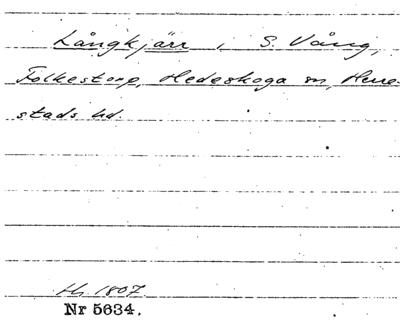 Långkjärr, S. Vång,
Folkestorp, Hedeskoga sn, Herre-
stads hd.
Hs. 1807.
Nr 5634.